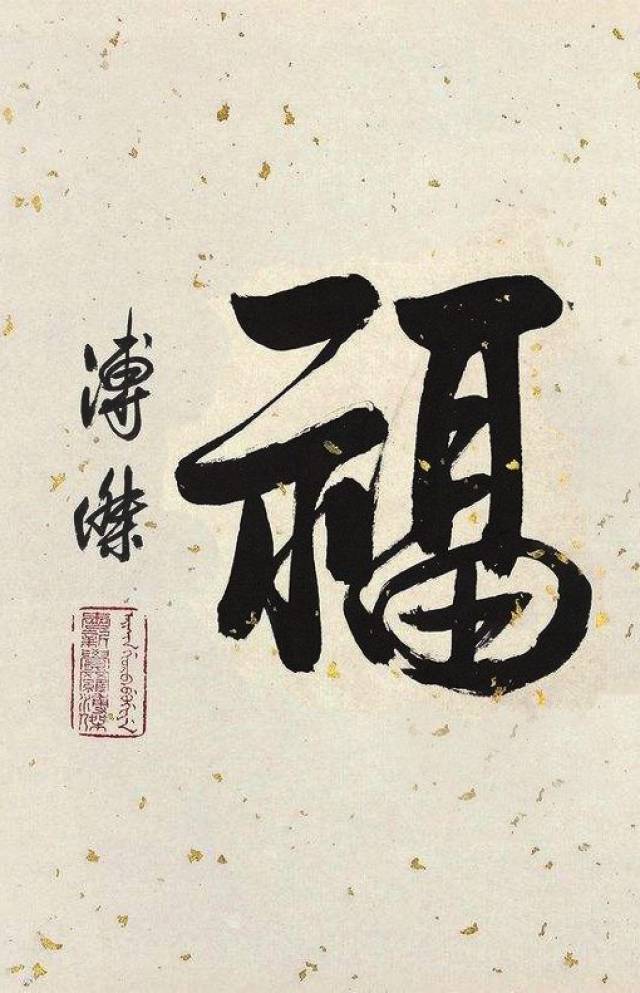 福
溥傑
愛新覺羅溥傑